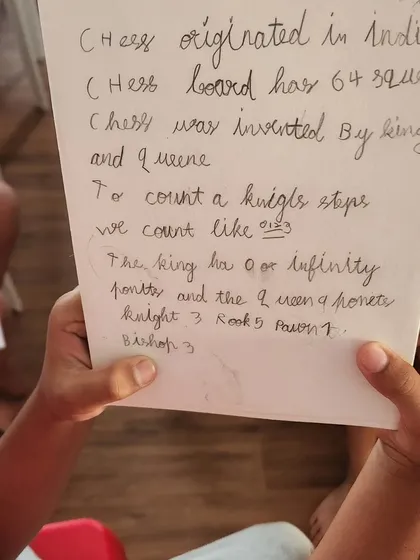 CHess originated in indi
CHess board has 64 sque
Chess was invented By king
and queene
To count a knigls steps
we count like 0123
The king ha 0 or infinity
ponits and the queen 9 ponets
knight 3 Rook 5 Pawn 1.
Bishop 3